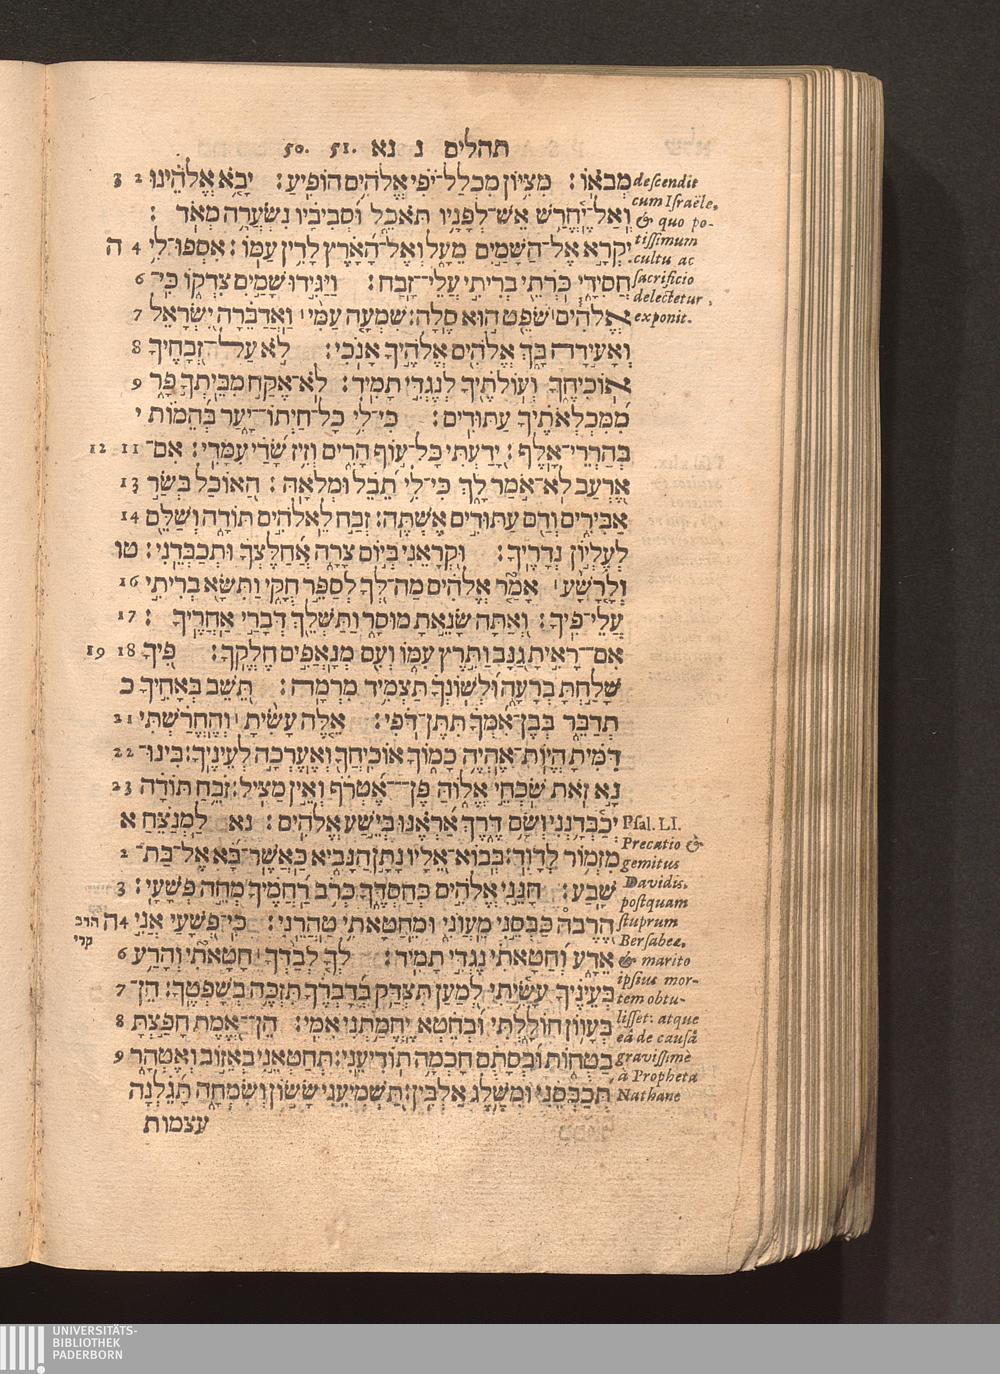 תהלים נ נא 50. 51.
מְבֹאוֹ׃ מִצִּיּוֹן מִכְלַל־יֹפִי אֱלֹהִים הוֹפִיעַ׃ יָבֹא אֱלֹהֵינוּ 2 3
וְאַל־יֶחֱרַשׁ אֵשׁ־לְפָנָיו תֹּאכֵל וּסְבִיבָיו נִשְׂעֲרָה מְאֹד׃
יִקְרָא אֶל־הַשָּׁמַיִם מֵעָל וְאֶל־הָאָרֶץ לָדִין עַמּוֹ׃ אִסְפוּ־לִי 4 ה
חֲסִידָי כֹּרְתֵי בְרִיתִי עֲלֵי־זָבַח׃ וַיַּגִּידוּ שָׁמַיִם צִדְקוֹ כִּי־ 6
אֱלֹהִים שֹׁפֵט הוּא סֶלָה׃ שִׁמְעָה עַמִּי וַאֲדַבֵּרָה יִשְׂרָאֵל 7
וְאָעִידָה בָּךְ אֱלֹהִים אֱלֹהֶיךָ אָנֹכִי׃ לֹא עַל־זְבָחֶיךָ 8
אוֹכִיחֶךָ וְעוֹלֹתֶיךָ לְנֶגְדִּי תָמִיד׃ לֹא־אֶקַּח מִבֵּיתְךָ פָר 9
מִמִּכְלְאֹתֶיךָ עַתּוּדִים׃ כִּי־לִי כָל־חַיְתוֹ־יָעַר בְּהֵמוֹת י
בְּהַרְרֵי־אָלֶף׃ יָדַעְתִּי כָּל־עוֹף הָרִים וְזִיז שָׂדַי עִמָּדִי׃ אִם־ 11 12
אֶרְעַב לֹא־אֹמַר לָךְ כִּי־לִי תֵבֵל וּמְלֹאָהּ׃ הַאוֹכַל בְּשַׂר 13
אַבִּירִים וְדַם עַתּוּדִים אֶשְׁתֶּה׃ זְבַח לֵאלֹהִים תּוֹדָה וְשַׁלֵּם 14
לְעֶלְיוֹן נְדָרֶיךָ׃ וּקְרָאֵנִי בְּיוֹם צָרָה אֲחַלֶּצְךָ וּתְכַבְּדֵנִי׃ טו
וְלָרָשָׁע אָמַר אֱלֹהִים מַה־לְּךָ לְסַפֵּר חֻקָּי וַתִּשָּׂא בְרִיתִי 16
עֲלֵי־פִיךָ׃ וְאַתָּה שָׂנֵאתָ מוּסָר וַתַּשְׁלֵךְ דְּבָרַי אַחֲרֶיךָ׃ 17
אִם־רָאִיתָ גַנָּב וַתִּרֶץ עִמּוֹ וְעִם מְנָאֲפִים חֶלְקֶךָ׃ פִּיךָ 18 19
שָׁלַחְתָּ בְרָעָה וּלְשׁוֹנְךָ תַּצְמִיד מִרְמָה׃ תֵּשֵׁב בְּאָחִיךָ כ
תְדַבֵּר בְּבֶן־אִמְּךָ תִּתֶּן־דֹּפִי׃ אֵלֶּה עָשִׂיתָ וְהֶחֱרַשְׁתִּי 21
דִּמִּיתָ הֱיוֹת־אֶהְיֶה כָמוֹךָ אוֹכִיחֲךָ וְאֶעֶרְכָה לְעֵינֶיךָ׃ בִּינוּ־ 22
נָא זֹאת שֹׁכְחֵי אֱלוֹהַּ פֶּן־אֶטְרֹף וְאֵין מַצִּיל׃ זֹבֵחַ תּוֹדָה 23
יְכַבְּדָנְנִי וְשָׂם דֶּרֶךְ אַרְאֶנּוּ בְּיֵשַׁע אֱלֹהִים׃ נא לַמְנַצֵּחַ א
מִזְמוֹר לְדָוִד׃ בְּבוֹא־אֵלָיו נָתָן הַנָּבִיא כַּאֲשֶׁר־בָּא אֶל־בַּת־ 2
שָׁבַע׃ חָנֵּנִי אֱלֹהִים כְּחַסְדֶּךָ כְּרֹב רַחֲמֶיךָ מְחֵה פְשָׁעָי׃ 3
הַרְבֵּה כַּבְּסֵנִי מֵעֲוֹנִי וּמֵחַטָּאתִי טַהֲרֵנִי׃ כִּי־פְשָׁעַי אֲנִי 4 ה
אֵדָע וְחַטָּאתִי נֶגְדִּי תָמִיד׃ לְךָ לְבַדְּךָ חָטָאתִי וְהָרַע 6
בְּעֵינֶיךָ עָשִׂיתִי לְמַעַן תִּצְדַּק בְּדָבְרֶךָ תִּזְכֶּה בְשָׁפְטֶךָ׃ הֵן־ 7
בְּעָווֹן חוֹלָלְתִּי וּבְחֵטְא יֶחֱמַתְנִי אִמִּי׃ הֵן־אֱמֶת חָפַצְתָּ 8
בַטֻּחוֹת וּבְסָתֻם חָכְמָה תוֹדִיעֵנִי׃ תְּחַטְּאֵנִי בְאֵזוֹב וְאֶטְהָר 9
תְּכַבְּסֵנִי וּמִשֶּׁלֶג אַלְבִּין׃ תַּשְׁמִיעֵנִי שָׂשׂוֹן וְשִׂמְחָה תָּגֵלְנָה
עצמות
descendit
cum Israële,
& quo po-
tissimum
cultu ac
sacrificio
delectetur,
exponit.
Psal. LI.
Precatio &
gemitus
Davidis,
postquam
stuprum
Bersabee,
& marito
ipsius mor-
tem obtu-
lisset: atque
eâ de causâ
gravissimè
à Propheta
Nathane
הרב
קרי
UNIVERSITÄTS-
BIBLIOTHEK
PADERBORN